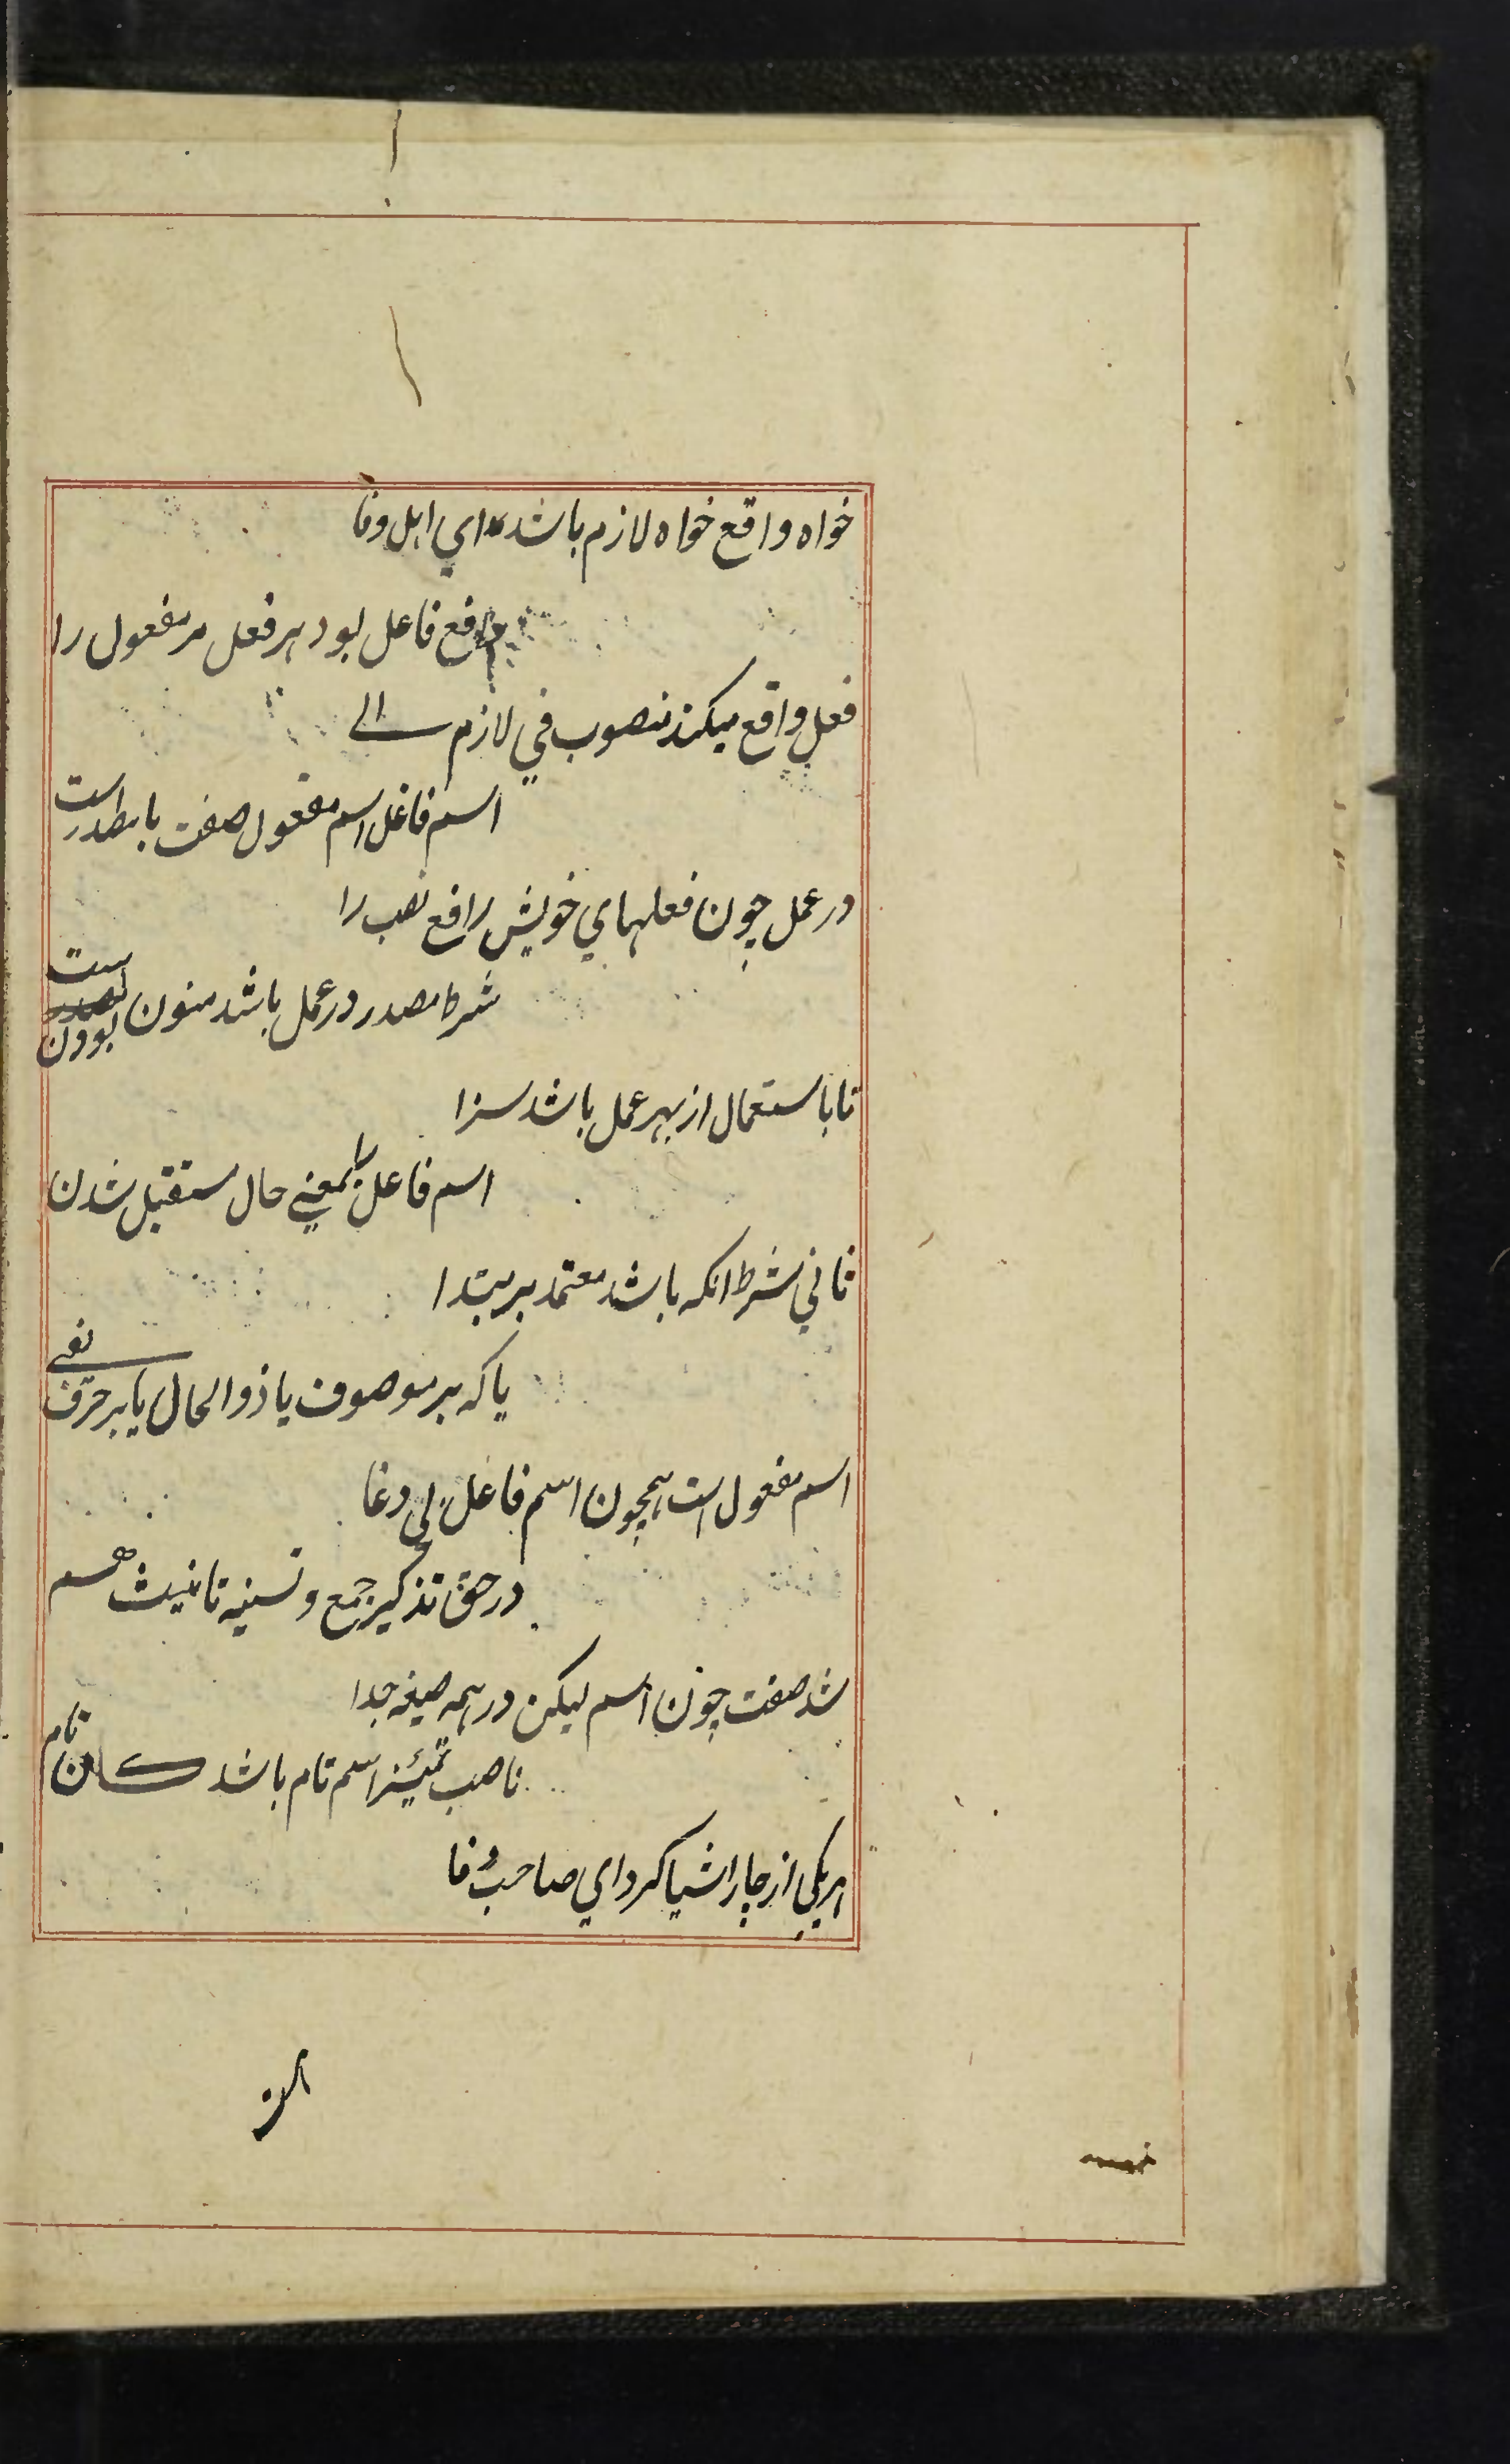 خواه واقع خواه لازم باشد اي اهل وفا
رافع فاعل بود هر فعل مر مفعول را
فعل واقع ميكند منصوب في لازم
اسم فاعل اسم مفعول صفت با مصدر است
در عمل چون فعلهاي خويش رافع نصب را
شرط مصدر در عمل باشد منون بودن ست
تا باستعمال از بهر عمل باشد سزا
اسم فاعل را بمعني حال مستقبل شدن
ثاني شرط انكه باشد معتمد بر مبتدا
يا كه بر موصوف يا ذوالحال يا بر حرف نفي
اسم مفعول است همچون اسم فاعل بي دغا
در حق تذكير جمع و تسنيه تانيث هم
شد صفت چون اسم ليكن در همه صيغه جدا
ناصب تميز اسم تام باشد كان تام
هر يكي از چار اشيا كرد اي صاحب وفا